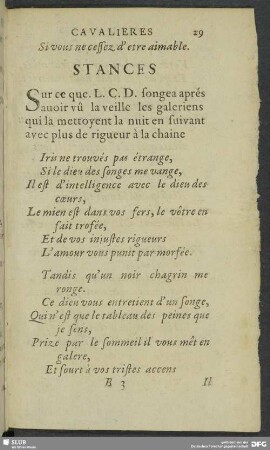 CAVALIERES 29
Si vous ne cessez d'etre aimable.
STANCES
Sur ce que. L. C. D. songea aprés
auoir vû la veille les galeriens
qui la mettoyent la nuit en suivant
avec plus de rigueur à la chaine
Iris ne trouvés pas étrange,
Si le dieu des songes me vange,
Il est d'intelligence avec le dieu des
cœurs,
Le mien est dans vos fers, le vôtre en
fait trofée,
Et de vos injustes rigueurs
L'amour vous punit par morfée.
Tandis qu'un noir chagrin me
ronge.
Ce dieu vous entretient d'un songe,
Qui n'est que le tableau des peines que
je sens,
Prize par le sommeil il vous mêt en
galere,
Et sourt à vos tristes accens
B 3 Il
SLUB
DFG